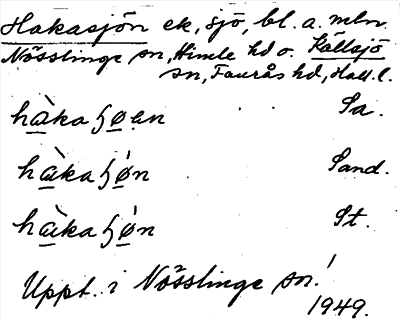 Hakasjön ek, sjö, bl. a. mln.
Nösslinge sn, Himle hd o. Källsjö
sn, Faurås hd, Hall. l.
hàkaʃøən Sa.
hàkaʃøn Sand.
hàkaʃøn St.
Uppt. i Nösslinge sn!
1949.